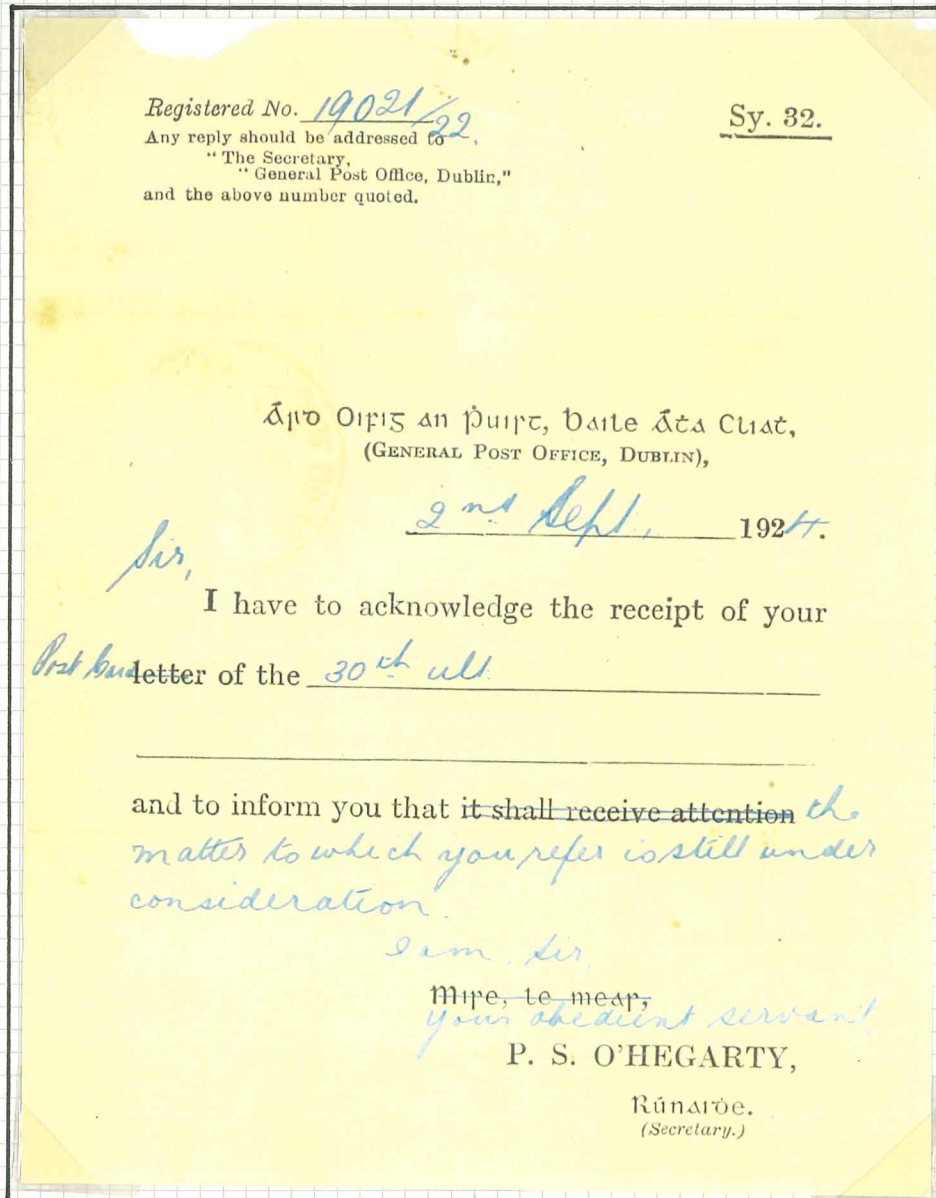 Registered No. 19021/22.
Sy. 32.
Any reply should be addressed to
“ The Secretary,
“ General Post Office, Dublin,”
and the above number quoted.
Árd Oifig an Ṗuirt, Ḃaile Áṫa Cliaṫ,
(General Post Office, Dublin),
2nd Sept. 1924.
Sir,
I have to acknowledge the receipt of your
Post Card letter of the 30th ult.
and to inform you that it shall receive attention the
matter to which you refer is still under
consideration.
I am, Sir,
Mise, le meas,
your obedient servant,
P. S. O'HEGARTY,
Rúnaiḋe.
(Secretary.)